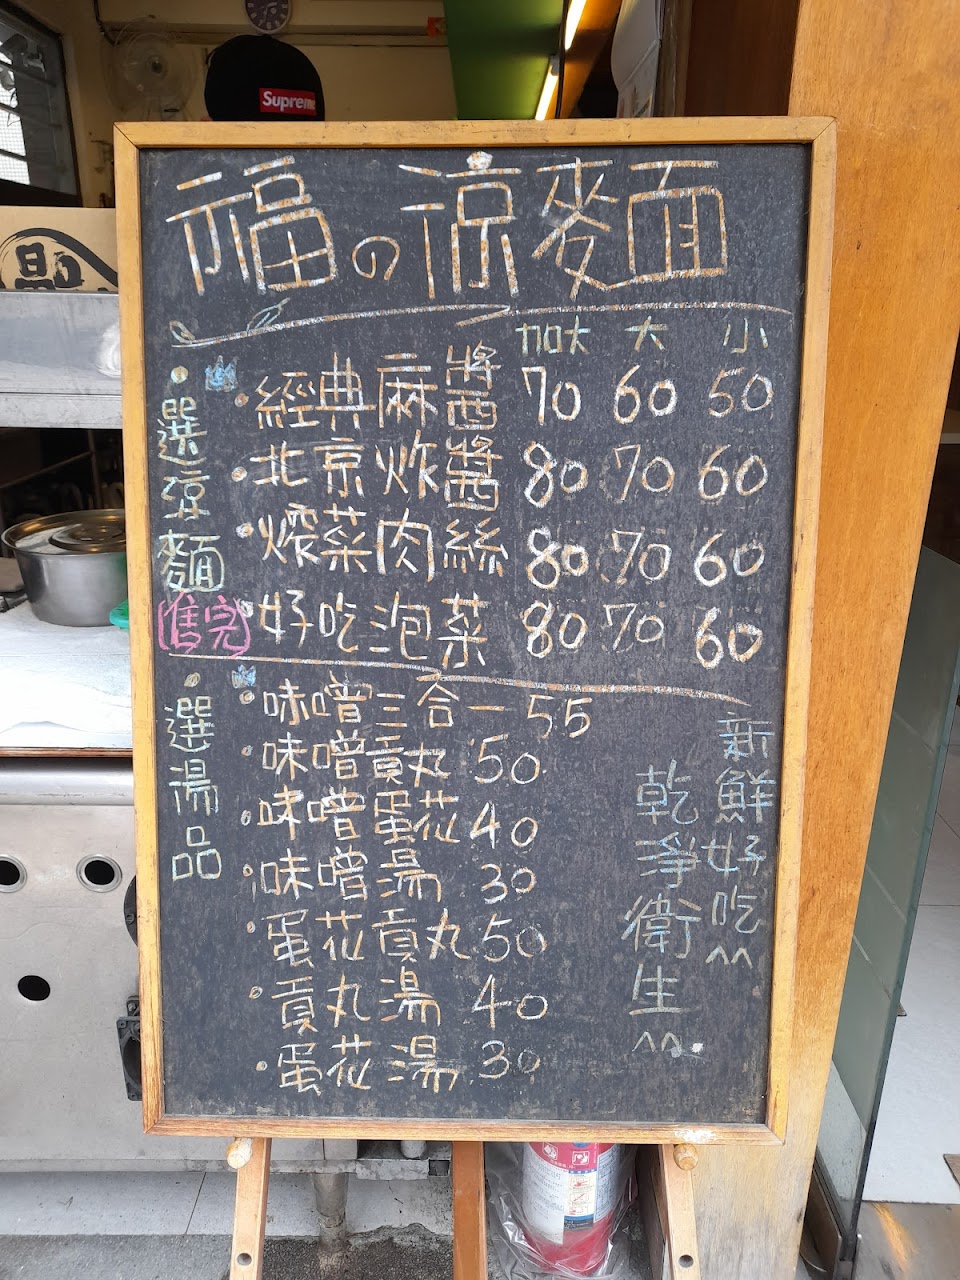 Supreme
福の涼麥面
加大 大 小
選涼麵
經典麻醬 70 60 50
北京炸醬 80 70 60
榨菜肉絲 80 70 60
售完 好吃泡菜 80 70 60
選湯品
味噌三合一 55
味噌貢丸 50
味噌蛋花 40
味噌湯 30
蛋花貢丸 50
貢丸湯 40
蛋花湯 30
新鮮好吃^^
乾淨衛生^^